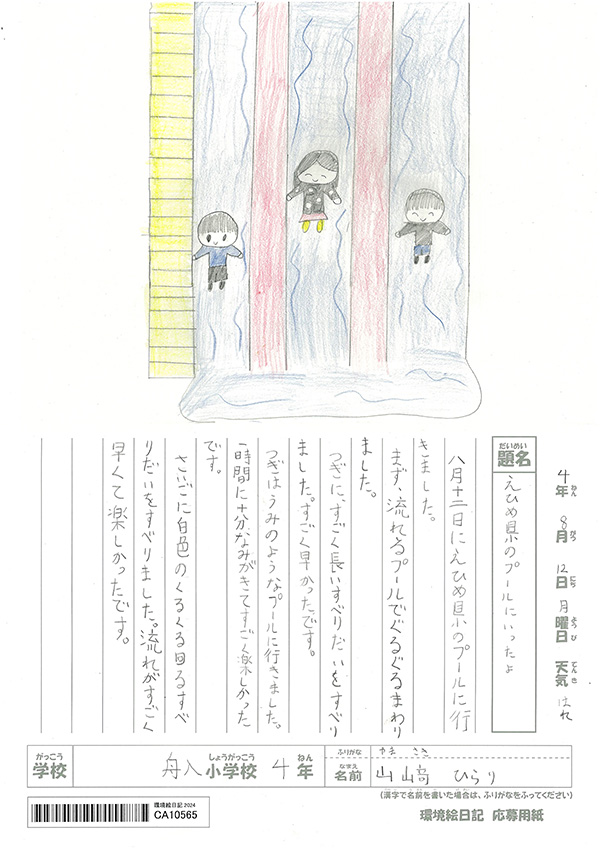 4年 8月 12日 月曜日 天気 はれ
ねん がつ にち ようび てんき
だいめい
題名
えひめ県のプールにいったよ
八月十二日にえひめ県のプールに行
きました。
まず、流れるプールでぐるぐるまわり
ました。
つぎに、すごく長いすべりだいをすべり
ました。すごく早かったです。
つぎはうみのようなプールに行きました。
一時間に十分なみがきてすごく楽しかった
です。
さいごに白色のくるくる回るすべ
りだいをすべりました。流れがすごく
早くて楽しかったです。
がっこう
学校
しょうがっこう ねん
舟入 小学校 4年
ふりがな
なまえ
名前
山﨑 ひらり
(漢字で名前を書いた場合は、ふりがなをふってください)
環境絵日記 2024
CA10565
環境絵日記 応募用紙